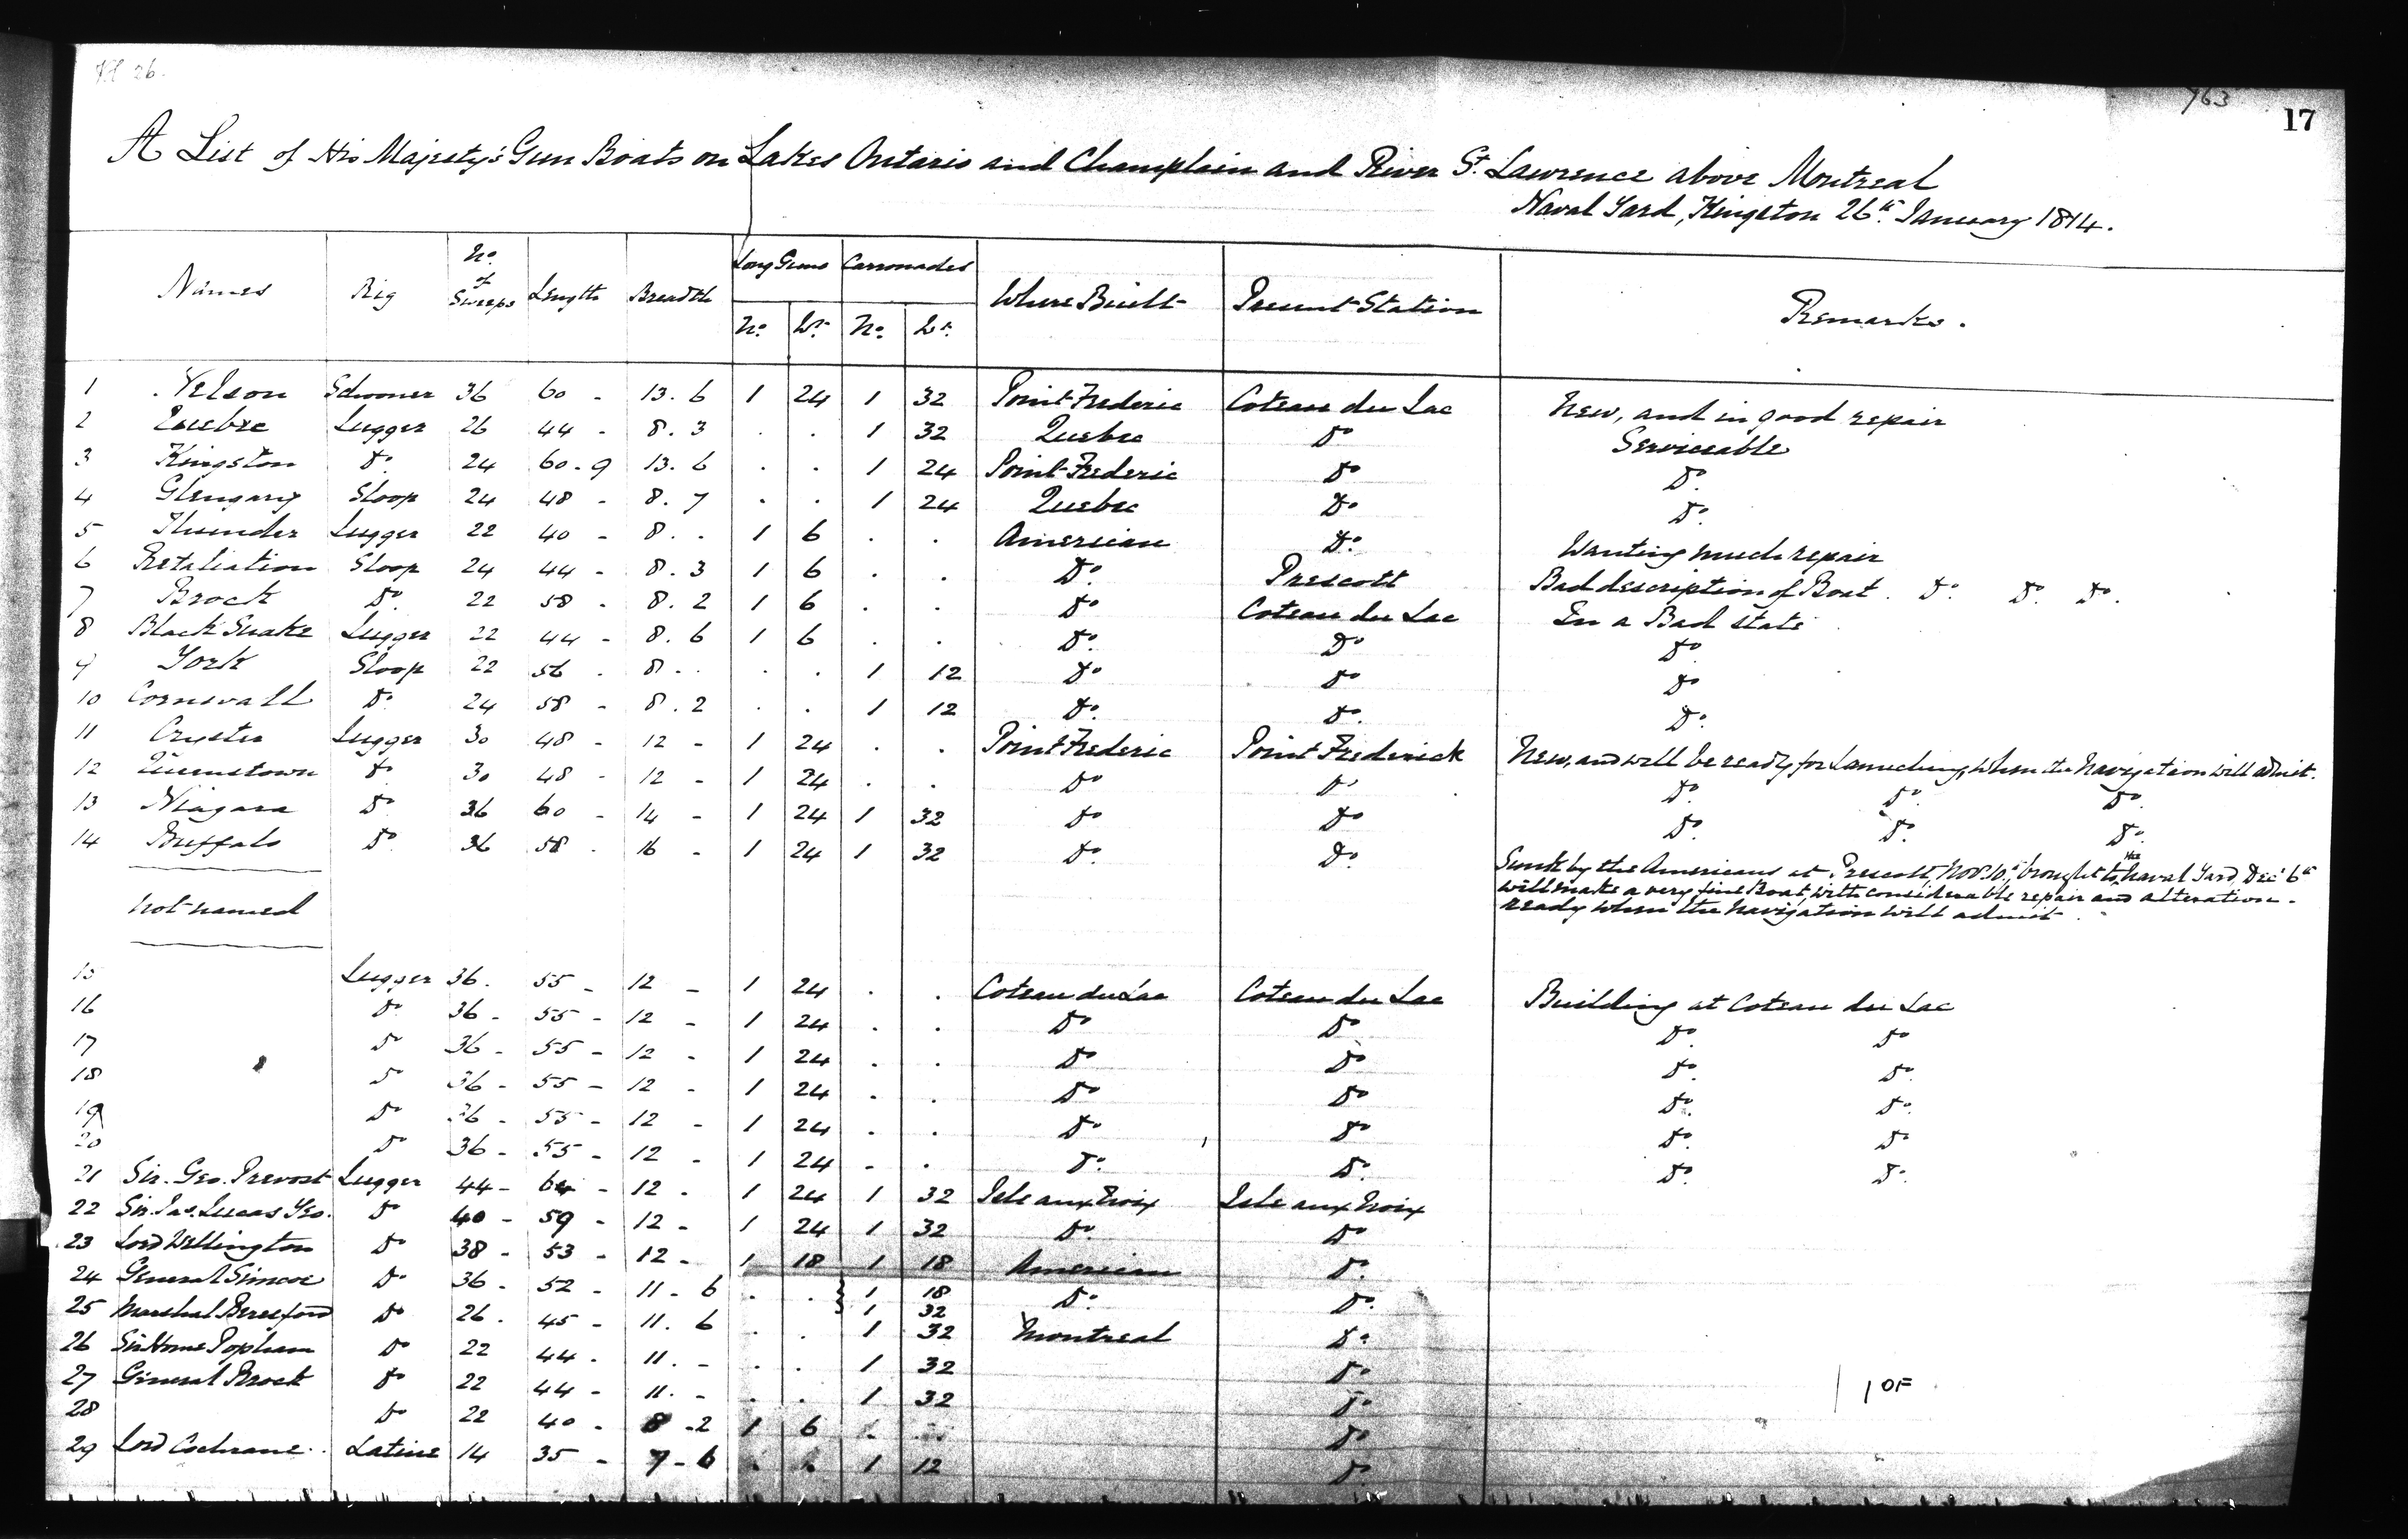 763
17
A List of His Majesty's Gun Boats on Lakes Ontario and Champlain and River St. Lawrence above Montreal
Naval Yard, Kingston 26th January 1814.
Names Rig No. of Sweeps Length Breadth Long Guns Carronades Where Built Present Station Remarks.
No. Wt. No. Wt.
1 Nelson Schooner 36 60 - 13. 6 1 24 1 32 Point Frederic Coteau du Lac New, and in good repair
2 Quebec Lugger 26 44 - 8. 3 . . 1 32 Quebec Do Serviceable
3 Kingston Do. 24 60-9 13. 6 . . 1 24 Point Frederic Do Do.
4 Glengary Sloop 24 48 - 8. 7 . . 1 24 Quebec Do Do.
5 Thunder Lugger 22 40 - 8. . 1 6 . . American Do. Wanting much repair
6 Retaliation Sloop 24 44 - 8. 3 1 6 . . Do. Prescott Bad description of Boat. Do. Do. Do.
7 Brock Do. 22 58 - 8. 2 1 6 . . Do Coteau du Lac In a Bad state
8 Black Snake Lugger 22 44 - 8. 6 1 6 . . Do. Do Do.
9 York Sloop 22 56 . 8 - . . . 1 12 Do Do Do
10 Cornwall Do 24 58 - 8. 2 . . 1 12 Do. Do. Do.
11 Cryster Lugger 30 48 - 12 - 1 24 . . Point Frederic Point Frederick New, and will be ready for Launching, when the Navigation will admit.
12 Queenstown Do 30 48 - 12 - 1 24 . . Do Do Do. Do. Do
13 Niagara Do 36 60 - 14 - 1 24 1 32 Do Do Do. Do. Do.
14 Buffalo Do 36 58 . 16 - 1 24 1 32 Do. Do. Sunk by the Americans at Prescott, Nov. 10th, brought to the Naval Yard, Dec 6th
will make a very fine Boat, with considerable repair and alteration -
ready when the Navigation will admit.
not named
15 Lugger 36. 55 - 12 - 1 24 . . Coteau du Lac Coteau du Lac Building at Coteau du Lac
16 Do. 36 - 55 - 12 - 1 24 . . Do Do Do. Do
17 Do 36 - 55 - 12 - 1 24 . . Do Do Do. Do.
18 Do 36 - 55 - 12 - 1 24 . . Do Do Do. Do.
19 Do 36 - 55 - 12 - 1 24 . . Do Do Do. Do
20 Do 36 - 55 - 12 - 1 24 - . Do. Do. Do. Do.
21 Sir. Geo. Prevost Lugger 44 - 64 - 12 . 1 24 1 32 Isle aux Noix Isle aux Noix
22 Sir. Jas. Lucas Yeo. Do 40 - 59 - 12 - 1 24 1 32 Do. Do
23 Lord Wellington Do 38 - 53 - 12 - 1 18 1 18 American Do.
24 General Simcoe Do 36 - 52 - 11 - 6 . . } 1 18 Do. Do.
1 32
25 Marshal Beresford Do 26 . 45 - 11. 6 . . 1 32 Montreal Do.
26 Sir Home Popham Do 22 44 . 11. - . . 1 32 Do.
27 General Brock Do 22 44 - 11. - . . 1 32 Do.
28 Do 22 40 - 8 - 2 1 6 Do
29 Lord Cochrane. Latine 14 35 - 7 - 6 . . 1 12 Do